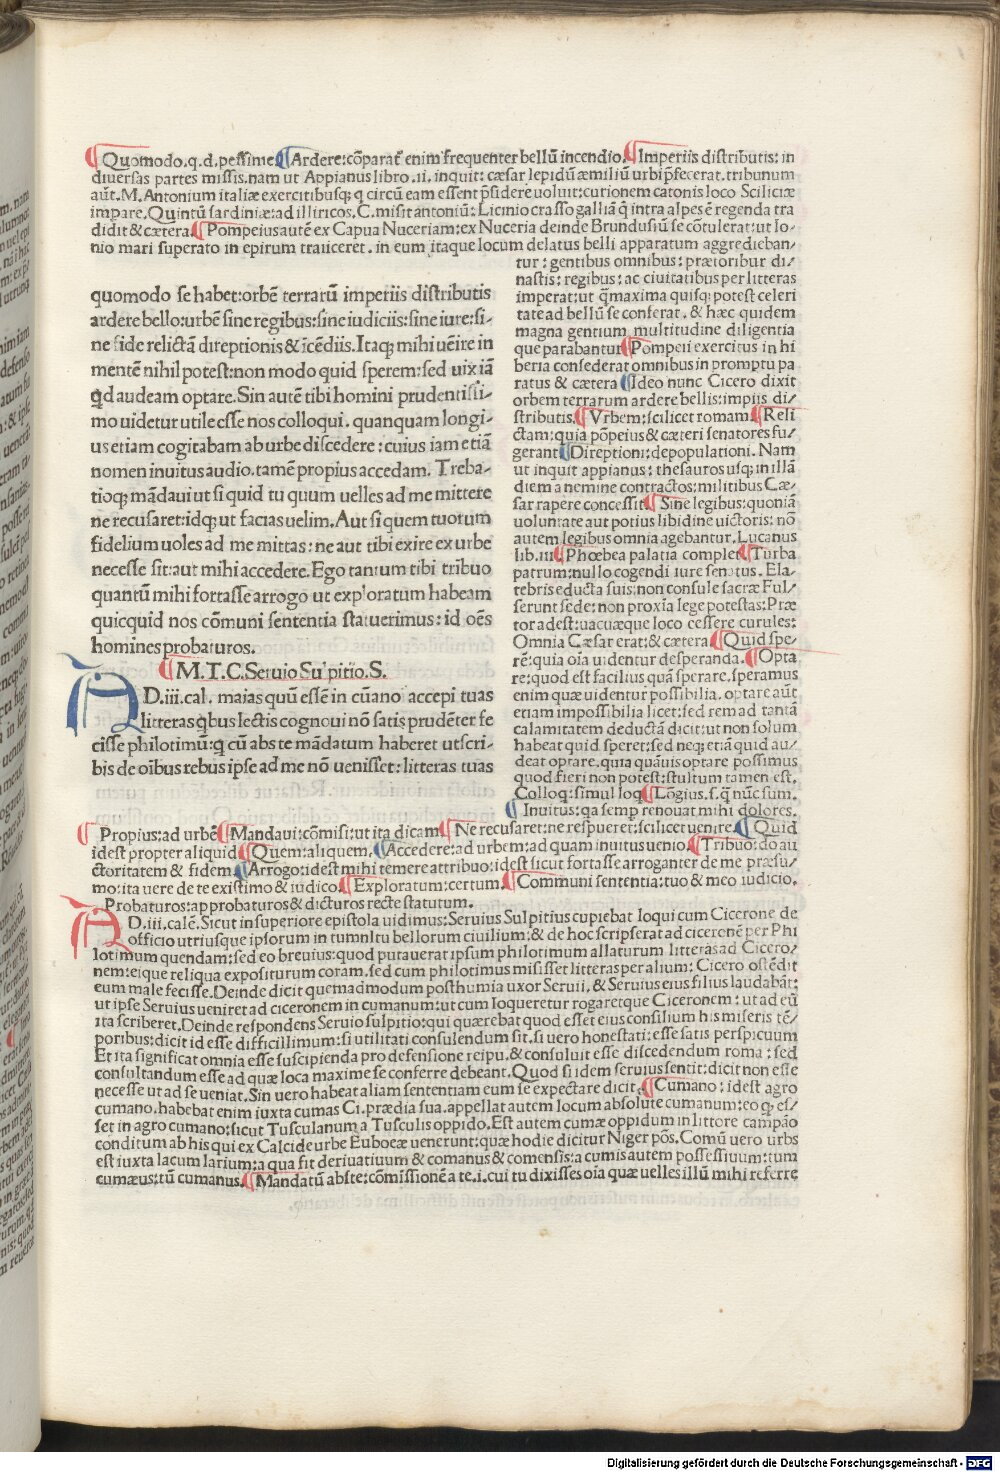 Quomodo.q.d.pessime Ardere:cōparat᷑ enim frequenter bellū incendio. Imperiis distributis: in
diuersas partes missis.nam ut Appianus libro.ii.inquit: cæsar lepidū æmiliū urbi p̄fecerat.tribunum
aūt.M.Antonium italiæ exercitibusq; q circū eam essent p̄sidere uoluit:curionem catonis loco Sciliciæ
impare.Quintū sardiniæ:ad illiricos.C.misit antoniū:Licinio crasso galliā q̄ intra alpes ē regenda tra
didit & cætera. Pompeius autē ex Capua Nuceriam:ex Nuceria deinde Brundusiū se cōtulerat:ut Io-
nio mari superato in epirum traiiceret.in eum itaque locum delatus belli apparatum aggredieban-
tur:gentibus omnibus:prætoribur di/
nastis:regibus:ac ciuitatibus per litteras
imperat:ut q̄ maxima quisq; potest celeri
tate ad bellū se conferat.& hæc quidem
magna gentium multitudine diligentia
que parabantur Pompeii exercitus in hi
beria consederat omnibus in promptu pa
ratus & cætera Ideo nunc Cicero dixit
orbem terrarum ardere bellis:impiis di/
stributis. Vrbem:scilicet romam. Reli
ctam:quia pōpeius & cæteri senatores fu/
gerant Direptioni:depopulationi. Nam
ut inquit appianus:thesauros usq; in illā
diem a nemine contractos:militibus Cæ/
sar rapere concessit Sine legibus:quoniā
uoluntate aut potius libidine uictoris:nō
autem legibus omnia agebantur.Lucanus
lib.iii. Phœbea palatia complet Turba
patrum:nullo cogendi iure senatus.Ela/
tebris educta suis:non consule sacræ Ful/
serunt sede:non proxīa lege potestas:Præ
tor adest:uacuæque loco cessere curules:
Omnia Cæsar erat:& cætera Quid spe/
rē:quia oīa uidentur desperanda. Opta
re:quod est facilius quā sperare.speramus
enim quæ uidentur possibilia.optare aūt
etiam impossibilia licet:sed rem ad tantā
calamitatem deductā dicit:ut non solum
habeat quid speret:sed neq; etiā quid au/
deat optare.quia quāuis optare possimus
quod fieri non potest:stultum tamen est.
Colloq:simul loq Lōgius.s.q̄ nūc sum.
Inuitus:qa semp renouat mihi dolores.
quomodo se habet:orbē terrarū imperiis distributis
ardere bello:urbē sine regibus:sine iudiciis:sine iure:si-
ne fide relictā direptionis & īcēdiis.Itaq; mihi uēire in
mentē nihil potest:non modo quid sperem:sed uix iā
qd audeam optare.Sin autē tibi homini prudentissi-
mo uidetur utile esse nos colloqui.quanquam longi-
us etiam cogitabam ab urbe discēdere:cuius iam etiā
nomen inuitus audio.tamē propius accedam.Treba-
tioq; mādaui ut si quid tu quum uelles ad me mittere
ne recusaret:idq; ut facias uelim.Aut si quem tuorum
fidelium uoles ad me mittas:ne aut tibi exire ex urbe
necesse sit:aut mihi accedere.Ego tantum tibi tribuo
quantū mihi fortasse arrogo ut exploratum habeam
quicquid nos cōmuni sententia statuerimus:id oēs
homines probaturos.
M.T.C.Seruio Sulpitio.S.
AD.iii.cal. maias quū essē in cūano accepi tuas
litteras qbus lectis cognoui nō satis prudēter fe
cisse philotimū:q cū abs te mādatum haberet utscri-
bis de oībus rebus ipse ad me nō uenisset:litteras tuas
Propius:ad urbē Mandaui:cōmisi:ut ita dicam Ne recusaret:ne respueret:scilicet uenire. Quid
idest propter aliquid Quem:aliquem. Accedere:ad urbem:ad quam inuitus uenio. Tribuo:do au
ctoritatem & fidem. Arrogo:idēst mihi temere attribuo:idest sicut fortasse arroganter de me præsu/
mo:ita uere de te existimo & iudico. Exploratum:certum. Communi sententia:tuo & meo iudicio.
Probaturos:approbaturos & dicturos recte statutum.
AD.iii.calē.Sicut in superiore epistola uidimus:Seruius Sulpitius cupiebat loqui cum Cicerone de
officio utriusque ipsorum in tumultu bellorum ciuilium:& de hoc scripserat ad ciceronē per Phi
lotimum quendam:sed eo breuius:quod putauerat ipsum philotimum allaturum litteras ad Cicero/
nem:eique reliqua expositurum coram.sed cum philotimus misisset litteras per alium:Cicero ostēdit
eum male fecisse.Deinde dicit quemadmodum posthumia uxor Seruii,& Seruius eius filius laudabāt:
ut ipse Seruius ueniret ad ciceronem in cumanum:ut cum loqueretur rogaretque Ciceronem:ut ad eū
ita scriberet.Deinde respondens Seruio sulpitio:qui quærebat quod esset eius consilium his miseris tē/
poribus:dicit id esse difficillimum:si utilitati consulendum sit.si uero honestati:esse satis perspicuum
Et ita significat omnia esse suscipienda pro defensione reipu.& consuluit esse discedendum roma:sed
consultandum esse ad quæ loca maxime se conferre debeant.Quod si idem seruius sentit:dicit non esse
necesse ut ad se ueniat.Sin uero habeat aliam sententiam eum se expectare dicit. Cumano:idest agro
cumano.habebat enim iuxta cumas Ci.prædia sua.appellat autem locum absolute cumanum:eo q̨ es/
set in agro cumano:sicut Tusculanum a Tusculis oppido.Est autem cumæ oppidum in littore campāo
conditum ab his qui ex Calcide urbe Euboeæ uenerunt:quæ hodie dicitur Niger pōs.Comū uero urbs
est iuxta lacum larium:a qua fit deriuatiuum & comanus & comensis:a cumis autem possessiuum:tum
cumæus:tū cumanus. Mandatū abste:cōmissionē a te.i.cui tu dixisses oīa quæ uelles illū mihi referre
Digitalisierung gefördert durch die Deutsche Forschungsgemeinschaft - DFG